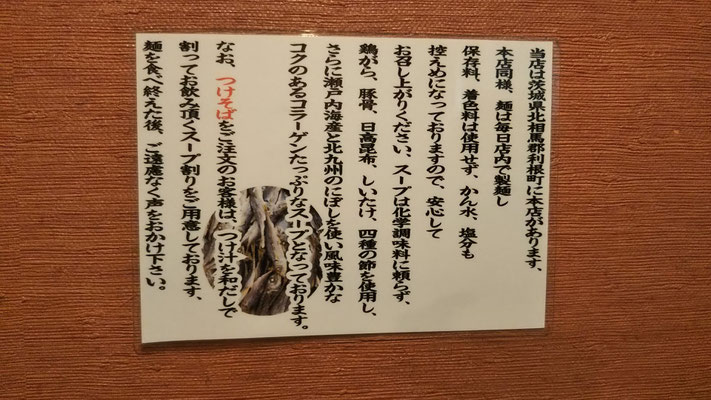 当店は茨城県北相馬郡利根町に本店があります、
本店同様、麺は毎日店内で製麺し
保存料、着色料は使用せず、かん水、塩分も
控えめになっておりますので、安心して
お召し上がりください、スープは化学調味料に頼らず、
鶏がら、豚骨、日高昆布、しいたけ、四種の節を使用し、
さらに瀬戸内海産と北九州のにぼしを使い風味豊かな
コクのあるコラーゲンたっぷりなスープとなっております。
なお、つけそばをご注文のお客様は、つけ汁を和だしで
割ってお飲み頂くスープ割りをご用意しております、
麺を食べ終えた後、ご遠慮なく声をおかけ下さい。